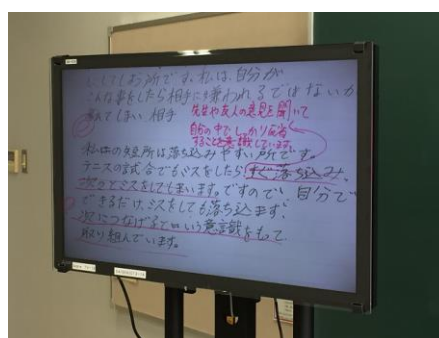 してしまう所です。私は、自分が
こんな事をしたら相手に嫌われるではないか
考えてしまい 相手
先生や友人の意見を聞いて
自分の中でしっかり
することを意識しています。
私の短所は落ち込みやすい所です。
テニスの試合でもミスをしたらすぐ落ち込み、
次のプレでミスをしてしまいます。ですので、自分で
できるだけ、ミスをしても落ち込まず、
次につなげるぞという意識をもって
取り組んでいます。